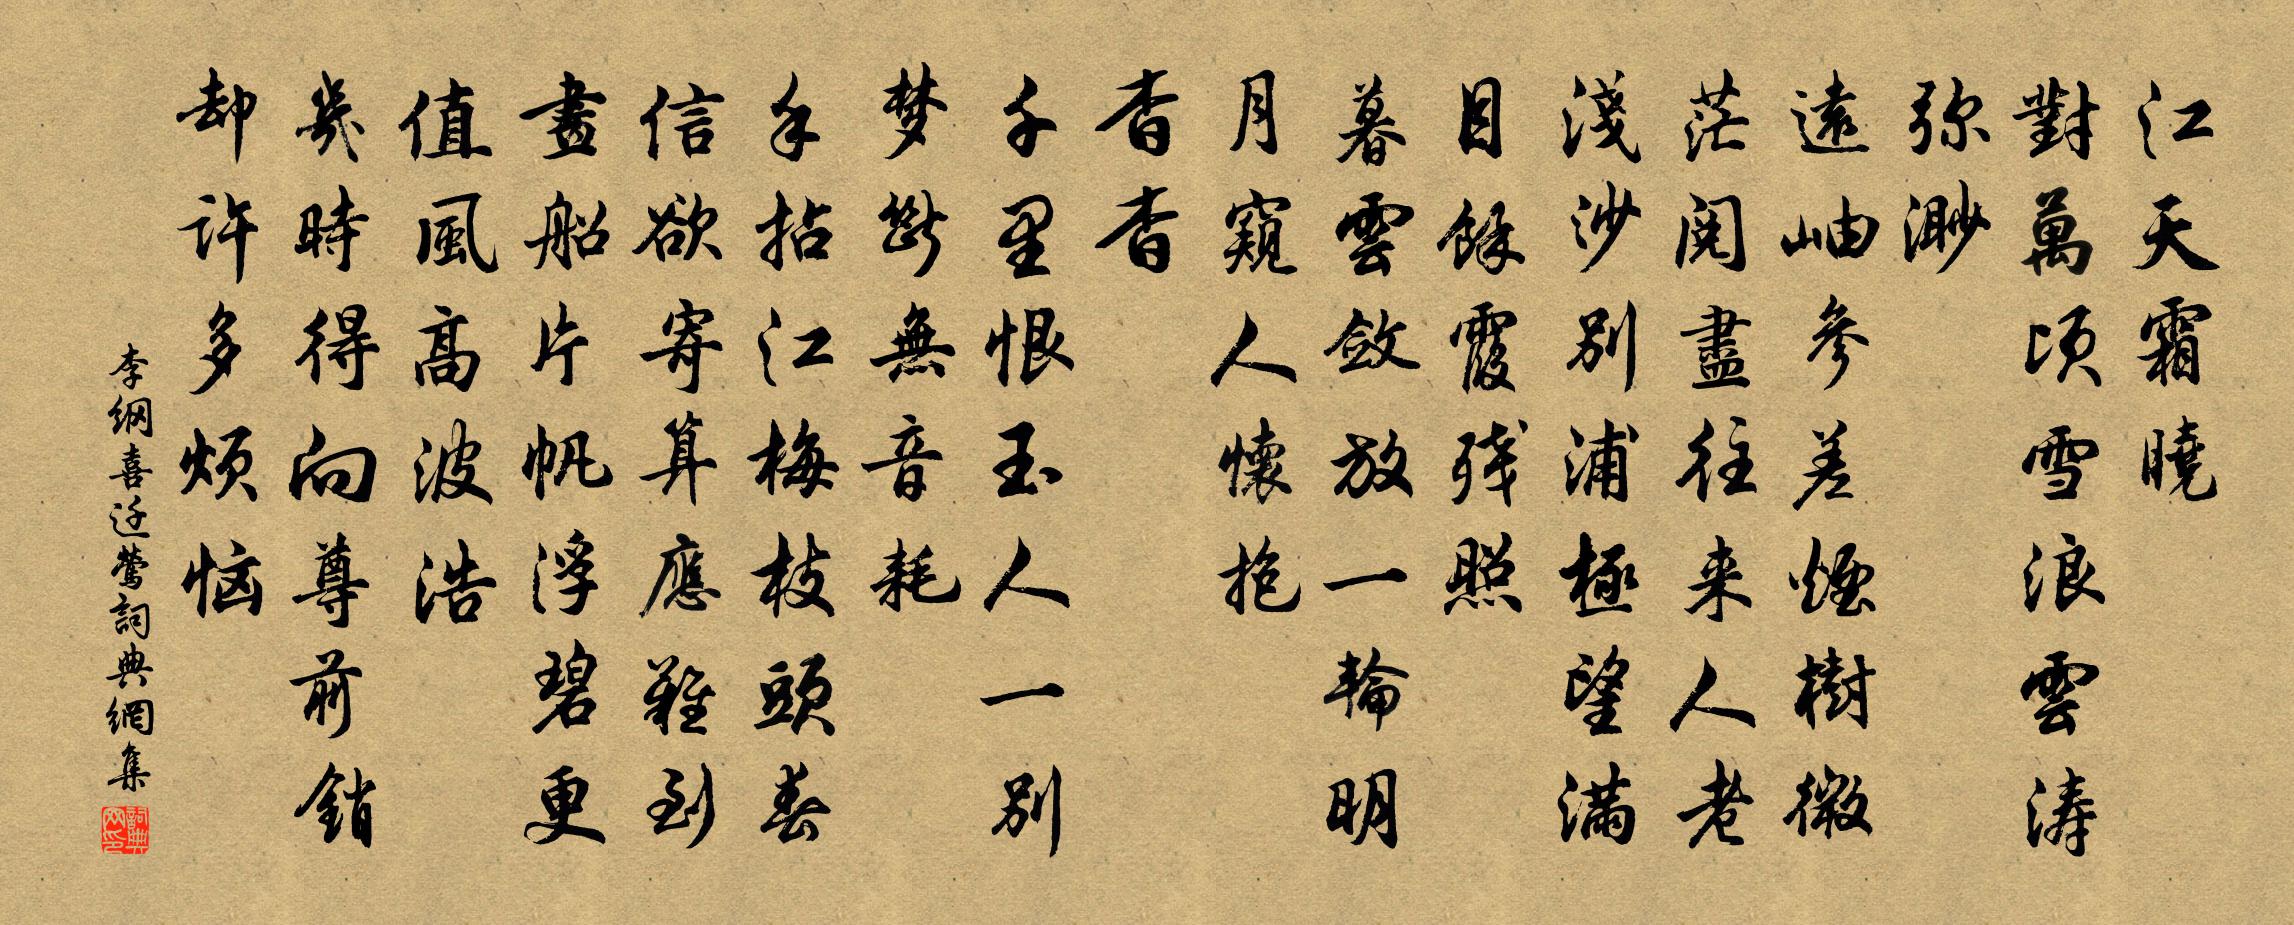 江天霜曉
對萬頃雪浪雲濤
弥渺
遠岫參差煙樹微
茫閱盡往来人老
淺沙别浦極望滿
目餘霞残照
暮雲斂放一輪明
月窺人懷抱
杳杳
千里恨玉人一别
梦斷無音耗
手拈江梅枝頭春
信欲寄算應難到
畫船片帆浮碧更
值風高波浩
幾時得向尊前銷
却許多煩惱
李綱喜迁鶯詞典網集
詞典网印